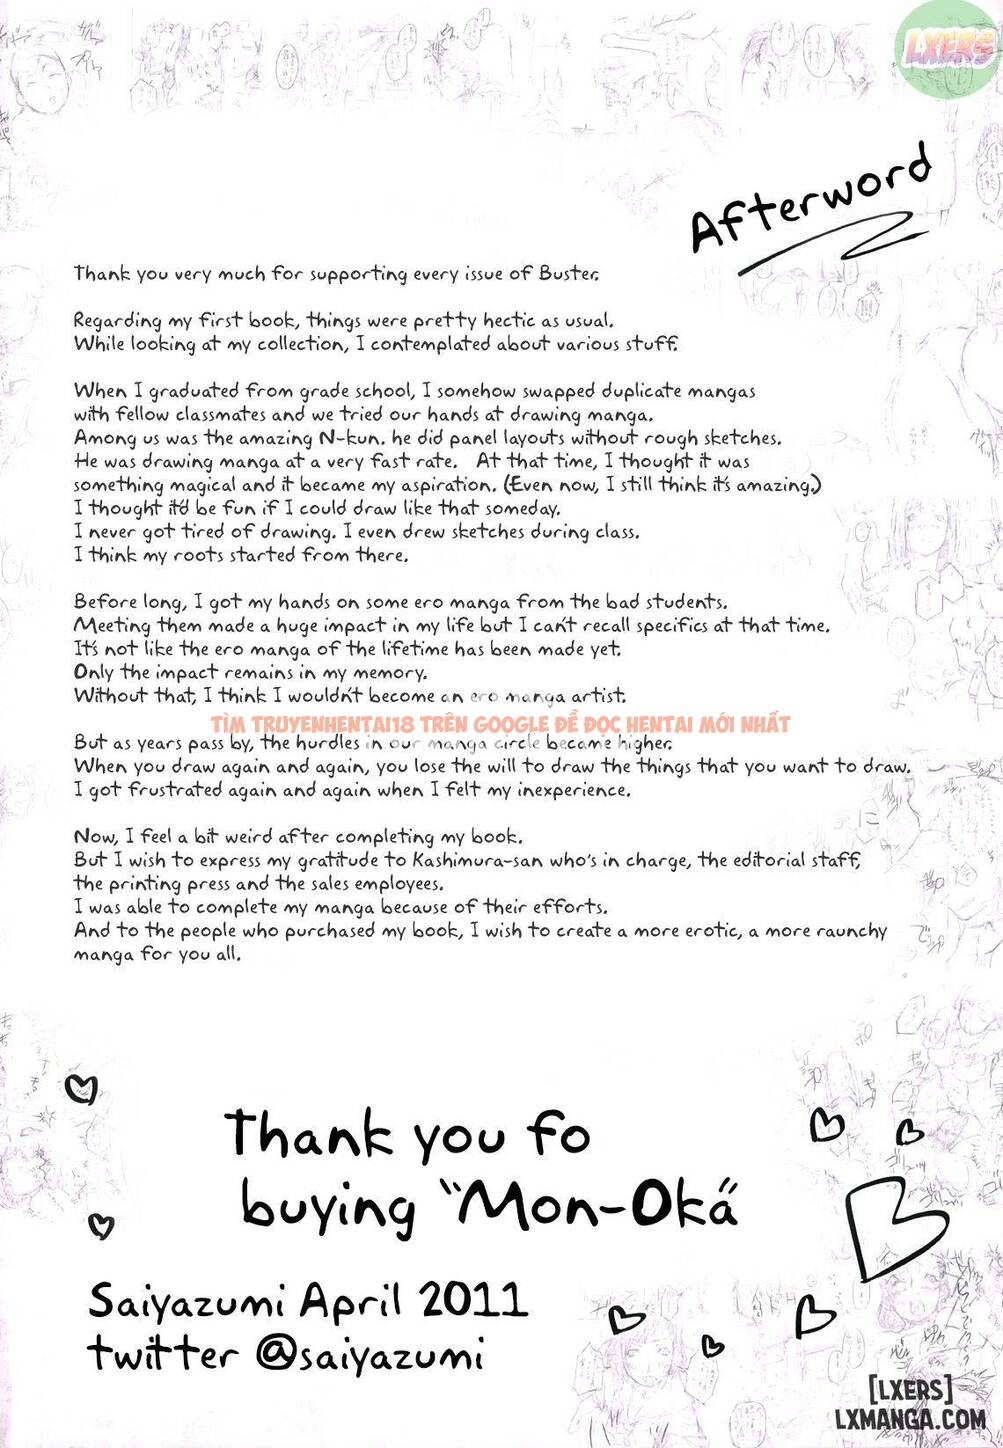 LXERS
Afterword
Thank you very much for supporting every issue of Buster.
Regarding my first book, things were pretty hectic as usual.
While looking at my collection, I contemplated about various stuff.
When I graduated from grade school, I somehow swapped duplicate mangas
with fellow classmates and we tried our hands at drawing manga.
Among us was the amazing N-kun. he did panel layouts without rough sketches.
He was drawing manga at a very fast rate. At that time, I thought it was
something magical and it became my aspiration. (Even now, I still think it's amazing.)
I thought it'd be fun if I could draw like that someday.
I never got tired of drawing. I even drew sketches during class.
I think my roots started from there.
Before long, I got my hands on some ero manga from the bad students.
Meeting them made a huge impact in my life but I can't recall specifics at that time.
It's not like the ero manga of the lifetime has been made yet.
Only the impact remains in my memory.
Without that, I think I wouldn't become an ero manga artist.
TÌM TRUYENHENTAI18 TRÊN GOOGLE ĐỂ ĐỌC HENTAI MỚI NHẤT
But as years pass by, the hurdles in our manga circle became higher.
When you draw again and again, you lose the will to draw the things that you want to draw.
I got frustrated again and again when I felt my inexperience.
Now, I feel a bit weird after completing my book.
But I wish to express my gratitude to Kashimura-san who's in charge, the editorial staff,
the printing press and the sales employees.
I was able to complete my manga because of their efforts.
And to the people who purchased my book, I wish to create a more erotic, a more raunchy
manga for you all.
Thank you fo
buying "Mon-Oka"
Saiyazumi April 2011
twitter @saiyazumi
[LXERS]
LXMANGA.COM